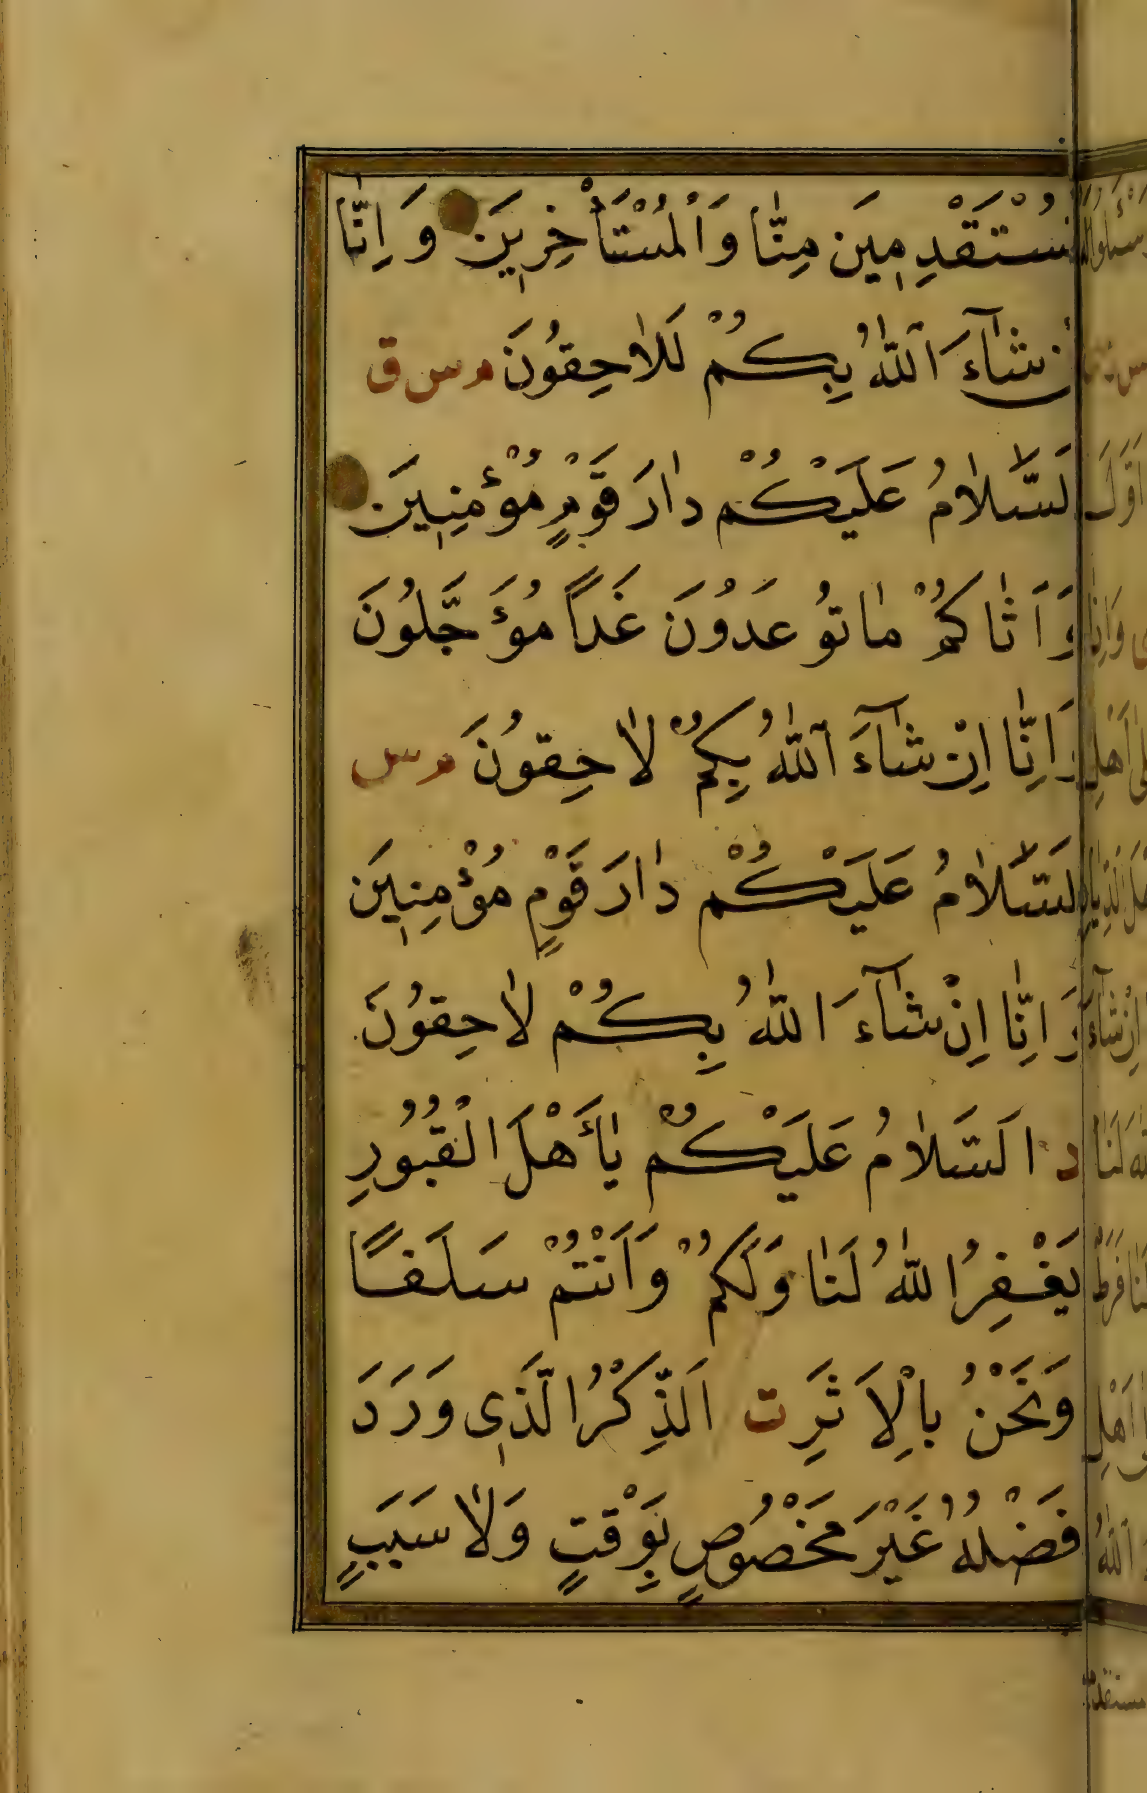 مُسْتَقْدِمِينَ مِنَّا وَالْمُسْتَأْخِرِينَ وَاِنَّا
اِنْ شَآءَ اَللّٰهُ بِكُمْ لَلَاحِقُونَ م س ق
اَلسَّلَامُ عَلَيْكُمْ دَارَ قَوْمٍ مُؤْمِنِينَ
وَاَتَاكُمْ مَا تُوعَدُونَ غَدًا مُؤَجَّلُونَ
وَاِنَّا اِنْ شَآءَ اَللّٰهُ بِكُمْ لَاحِقُونَ م س
اَلسَّلَامُ عَلَيْكُمْ دَارَ قَوْمٍ مُؤْمِنِينَ
وَاِنَّا اِنْ شَآءَ اللّٰهُ بِكُمْ لَاحِقُونَ
د اَلسَّلَامُ عَلَيْكُمْ يَا أَهْلَ الْقُبُورِ
يَغْفِرُ اللّٰهُ لَنَا وَلَكُمْ وَاَنْتُمْ سَلَفًا
وَنَحْنُ بِالْاَثَرِ ت اَلذِّكْرُ الَّذِى وَرَدَ
فَضْلُهُ غَيْرَ مَخْصُوصٍ بِوَقْتٍ وَلَا سَبَبٍ